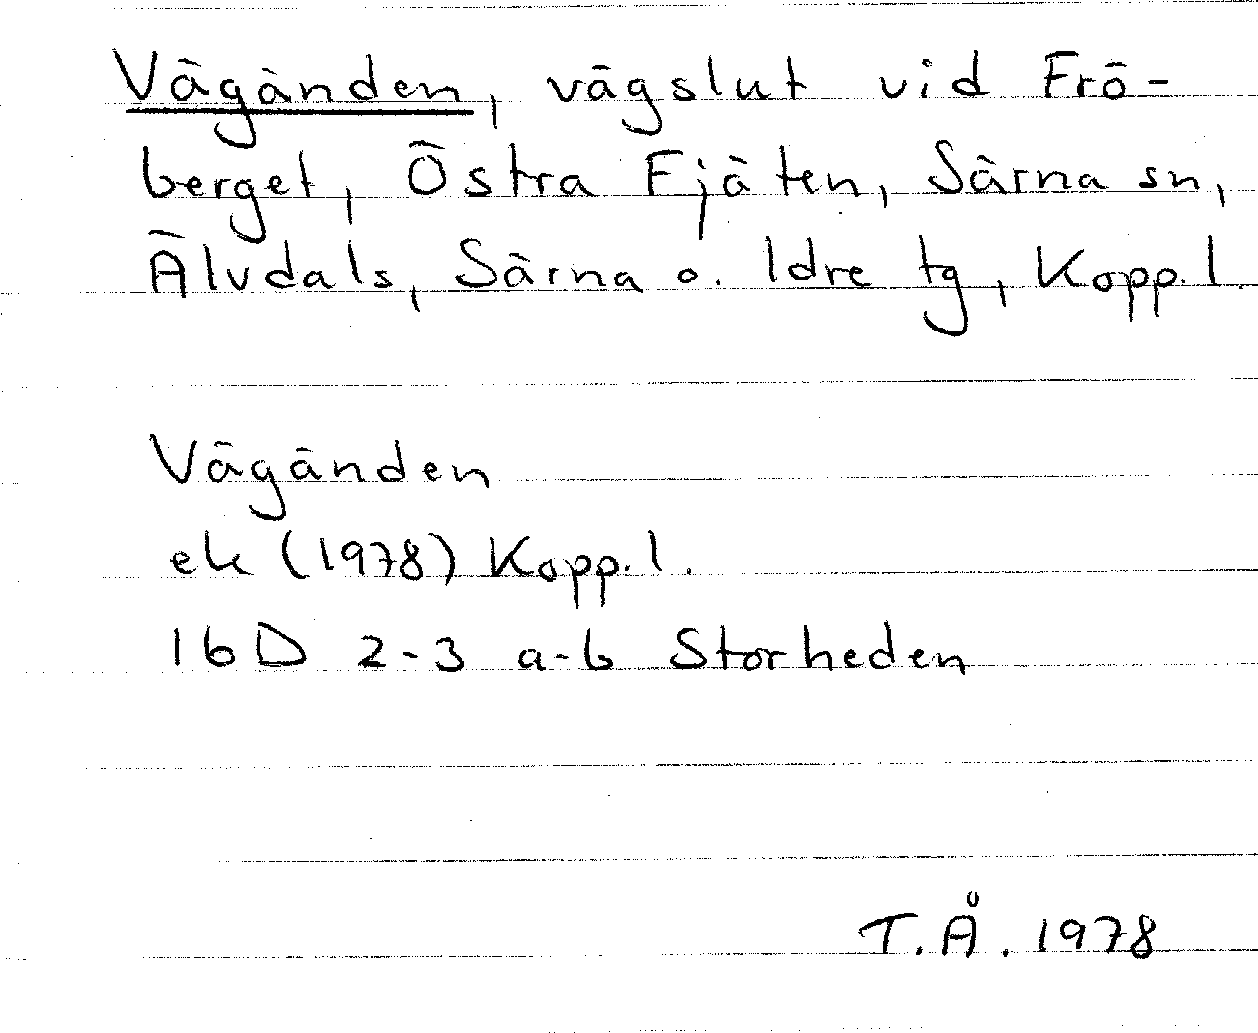 Vägänden, vägslut vid Frö-
berget, Östra Fjäten, Särna sn,
Älvdals, Särna o. Idre tg, Kopp.l.
Vägänden
ek (1978) Kopp.l.
16D 2-3 a-b Storheden
T.Å. 1978